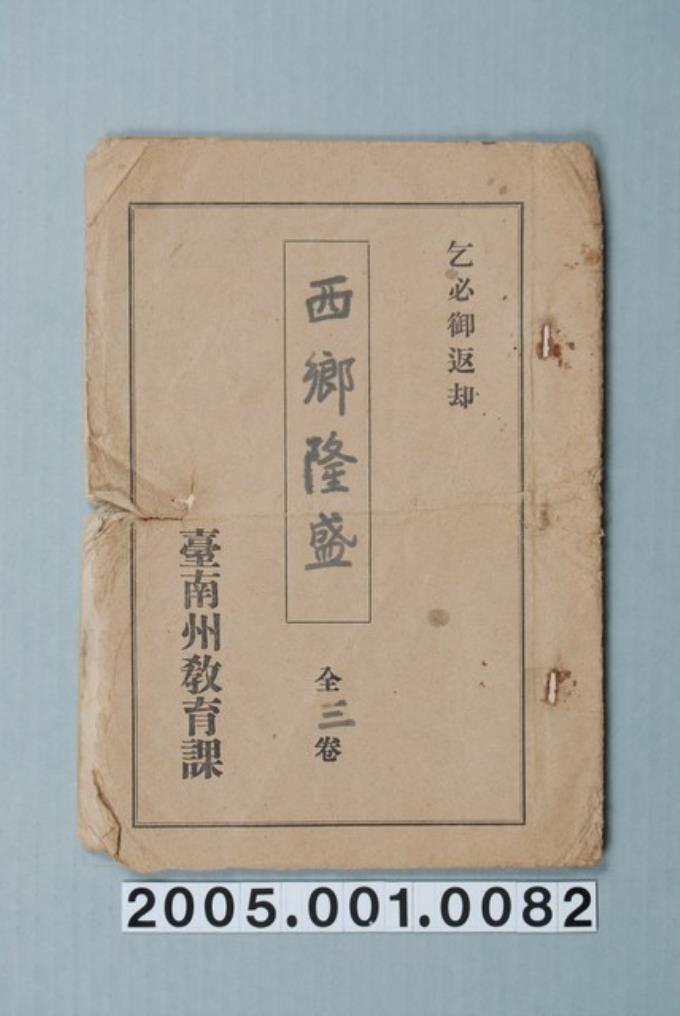 乞必御返却
西鄉隆盛
全三卷
臺南州教育課
2005.001.0082